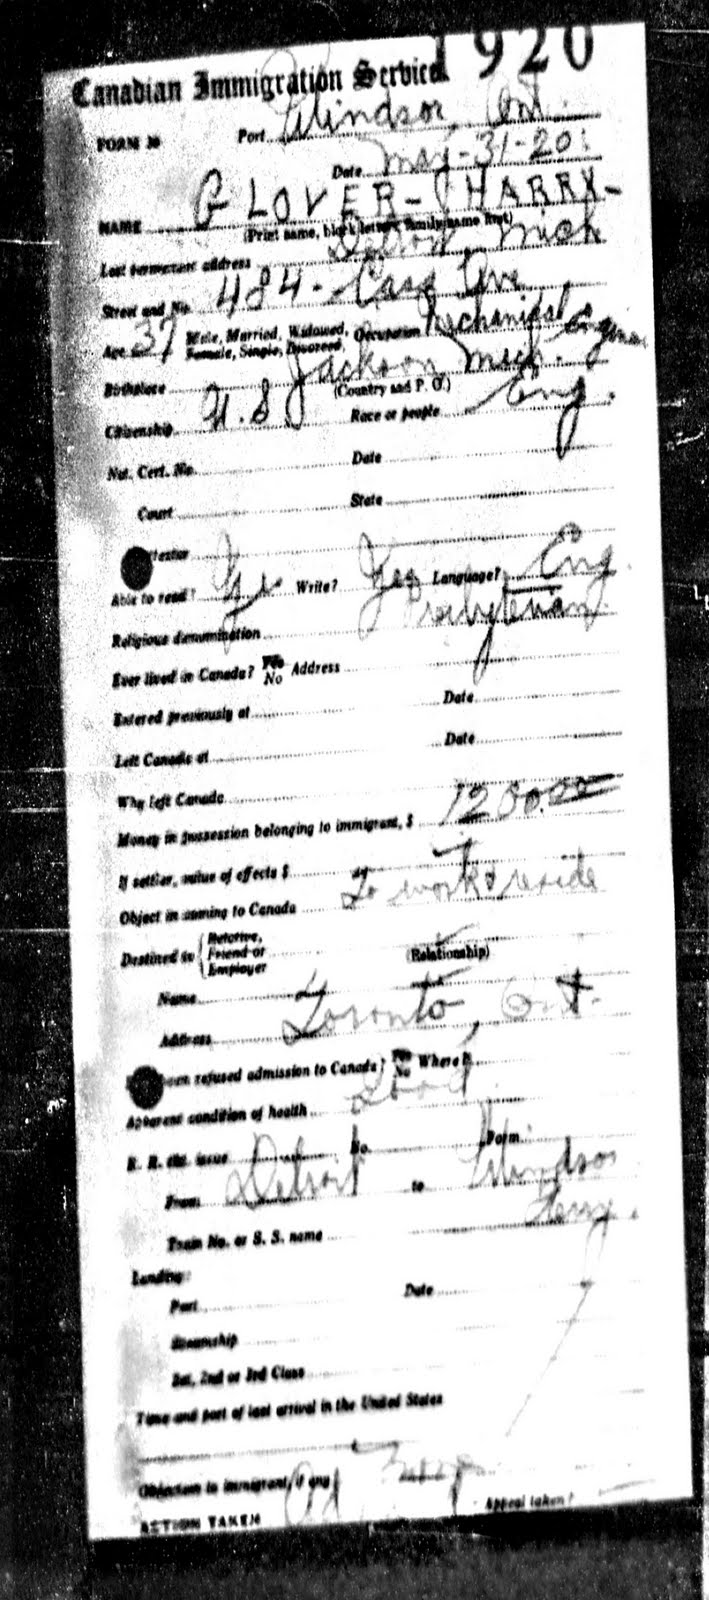 1920
Canadian Immigration Service
FORM 30 Port Windsor, Ont.
Date May-31-20
NAME GLOVER-HARRY-
(Print name, block letters, family name first)
Last permanent address Detroit, Mich
Street and No. 484-Cass Ave
Age 37 Male, Married, Widowed, Female, Single, Divorced, Occupation Mechanical Engineer
Birthplace Jackson Mich.
(Country and P. O.)
Citizenship U.S Race or people Eng.
Nat. Cert. No. Date
Court State
Able to read? Yes Write? Yes Language? Eng.
Religious denomination Presbyterian
Ever lived in Canada? Yes No Address
Entered previously at Date
Left Canada at Date
Why left Canada
Money in possession belonging to immigrant, $ 1200.00
If settler, value of effects $
Object in coming to Canada To work & reside
Destined to Relative, Friend or Employer (Relationship)
Name
Address Toronto, Ont.
been refused admission to Canada? Yes No Where
Apparent condition of health Good
R. R. tkt. issue No. Form
From Detroit to Windsor
Train No. or S. S. name Ferry.
Landing:
Port Date
Steamship
1st, 2nd or 3rd Class
Time and port of last arrival in the United States
Objection to immigrant, if any
ACTION TAKEN Appeal taken?